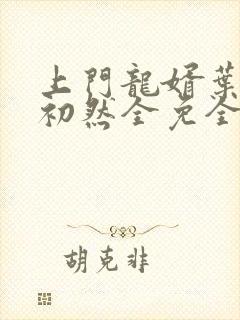 上門龍婿葉
初然全免全
胡克非